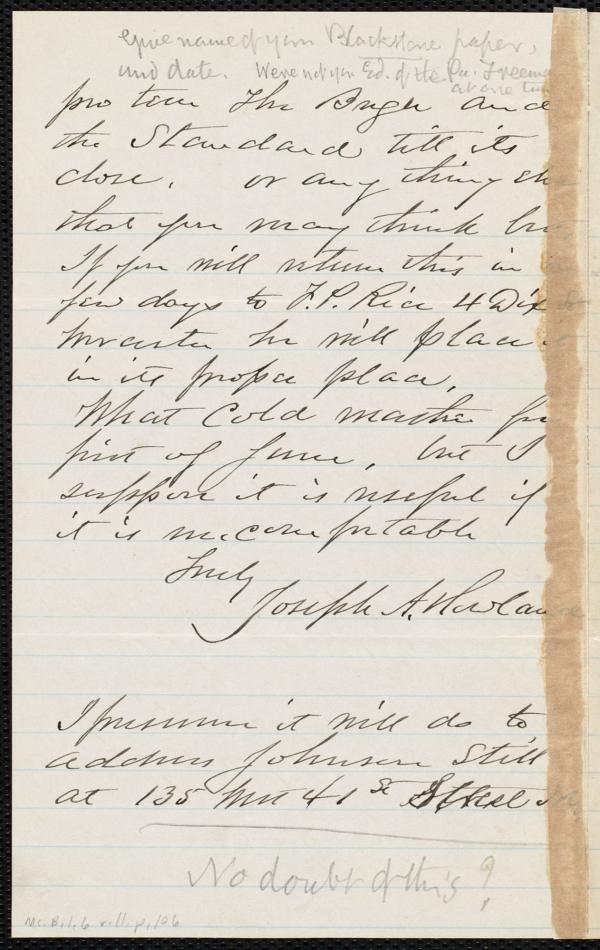 Give name of your Blackstone paper,
and date. Were not you Ed. of the Pa. Freeman
at one time
pro tem The Bugle and
the Standard till its
close, or any thing else
that you may think
If you will return this in
few days to F. P. Rice 4 Dix St
Worcester he will place it
in its proper place.
What Cold weather for
first of June, but I
suppose it is useful if
it is uncomfortable
Truly
Joseph A. Howland
I presume it will do to
address Johnson Still
at 135 West 41st Street
No doubt of this?
Ms. B. 1. 6 v. 11, p. 106